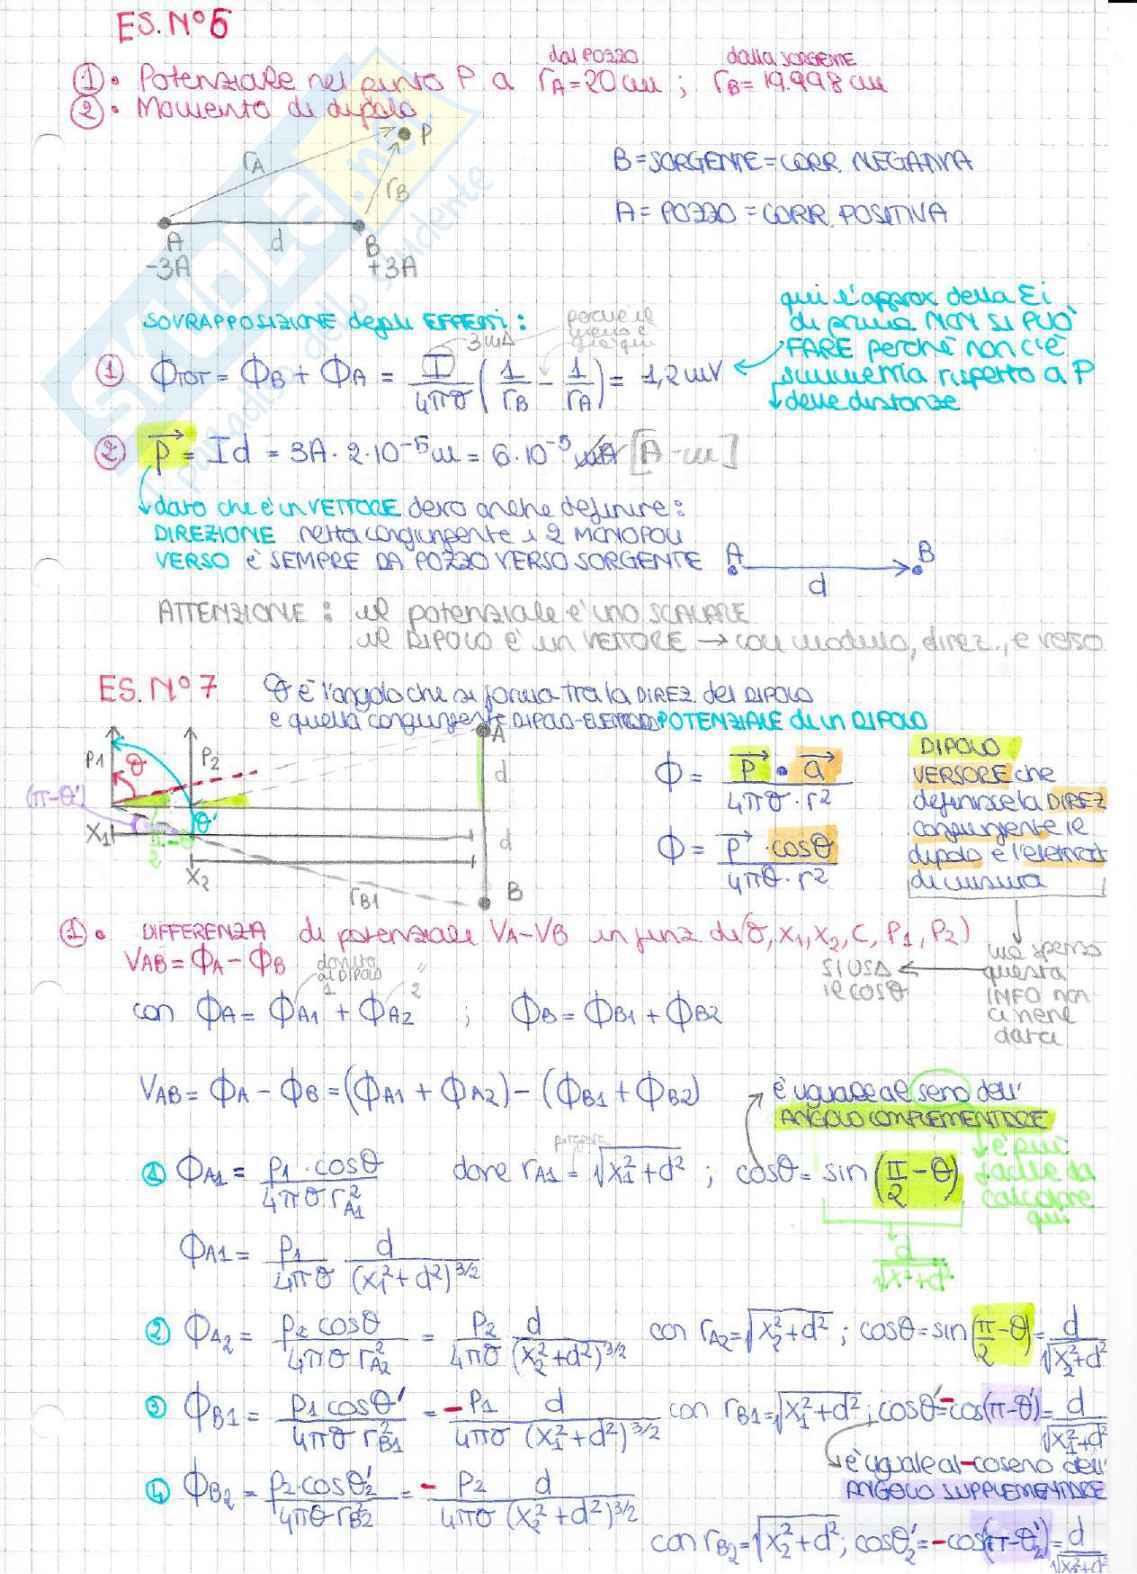 ES. N°6
dal POZZO dalla SORGENTE
① • Potenziale nel punto P a rA = 20 cm ; rB = 19.998 cm
② • Momento di dipolo
P
rA
rB
A d B
-3A +3A
B = SORGENTE = CORR. NEGATIVA
A = POZZO = CORR. POSITIVA
SKUOLA.net
il paradiso dello studente
SOVRAPPOSIZIONE degli EFFETTI :
3mA
① ΦTOT = ΦB + ΦA = I/4πσ (1/rB - 1/rA) = 1,2 mV
qui l'approx della Ei
di prima NON SI PUO'
FARE perché non c'è
simmetria rispetto a P
delle distanze
② P = I d = 3A · 2·10⁻⁵ m = 6·10⁻⁵ [A-m]
dato che è un VETTORE devo anche definire :
DIREZIONE retta congiungente i 2 MONOPOLI
VERSO è SEMPRE DA POZZO VERSO SORGENTE A d B
ATTENZIONE : il potenziale è uno SCALARE
il DIPOLO è un VETTORE → con modulo, direz., e verso
ES. N°7 θ è l'angolo che si forma tra la DIREZ. del DIPOLO
e quella congiungente DIPOLO-ELETTRODO
POTENZIALE di un DIPOLO
P1 θ P2 A
d
(π-θ') θ'
X1 π/2-θ d
X2
rB1 B
Φ = P · a / 4πσ · r²
Φ = P · cosθ / 4πσ · r²
DIPOLO
VERSORE che
definisce la DIREZ
congiungente il
dipolo e l'elettrodo
di misura
ma spesso
questa
INFO non
ci viene
data
SI USA
il cosθ
① • DIFFERENZA di potenziale VA-VB in funz di (σ, x1, x2, C, P1, P2)
VAB = ΦA - ΦB
dovuto al DIPOLO 1 " 2
con ΦA = ΦA1 + ΦA2 ; ΦB = ΦB1 + ΦB2
VAB = ΦA - ΦB = (ΦA1 + ΦA2) - (ΦB1 + ΦB2)
è uguale al seno dell'
ANGOLO COMPLEMENTARE
è più
facile da
calcolare
qui
① ΦA1 = P1 · cosθ / 4πσ rA1² dove rA1 = √(x1² + d²) ; cosθ = sin(π/2 - θ)
d/√(x² + d²)
ΦA1 = P1/4πσ d/(x1² + d²)^3/2
② ΦA2 = P2 cosθ / 4πσ rA2² = P2/4πσ d/(x2² + d²)^3/2 con rA2 = √(x2² + d²) ; cosθ = sin(π/2 - θ) = d/√(x2² + d²)
③ ΦB1 = P1 cosθ' / 4πσ rB1² = -P1/4πσ d/(x1² + d²)^3/2 con rB1 = √(x1² + d²) ; cosθ' = -cos(π-θ') = d/√(x1² + d²)
è uguale al -coseno dell'
ANGOLO SUPPLEMENTARE
④ ΦB2 = P2 · cosθ2' / 4πσ rB2² = -P2/4πσ d/(x2² + d²)^3/2
con rB2 = √(x2² + d²) ; cosθ2' = -cos(π-θ2') = d/√(x2² + d²)